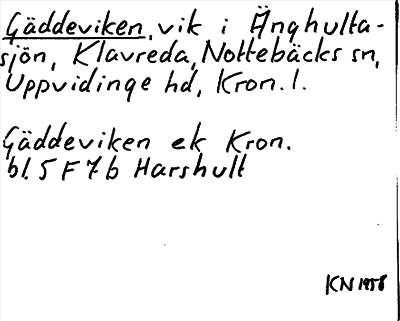 Gäddeviken, vik i Änghulta-
sjön, Klavreda, Nottebäcks sn,
Uppvidinge hd, Kron. l.
Gäddeviken ek Kron.
bl. 5 F 7 b Harshult
KN 1958